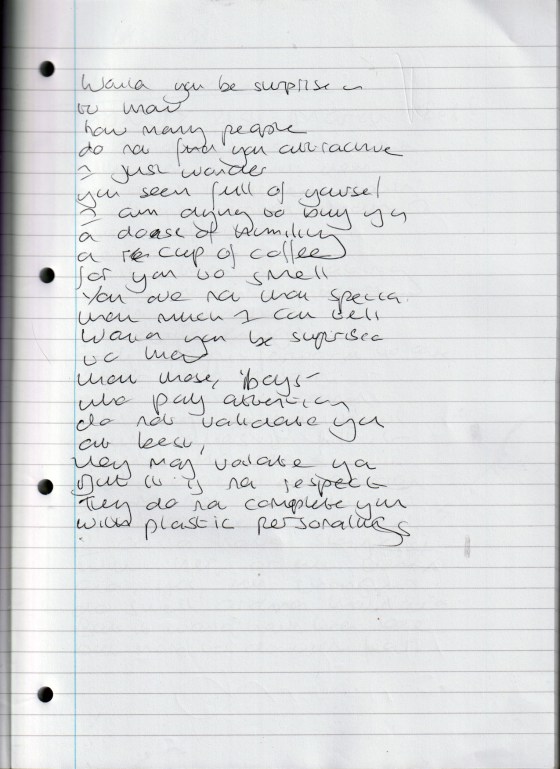 Would you be surprise
to know
how many people
do not find you attractive
I just wonder
you seem full of yourself
I am dying to buy you
a dose of humility
a cup of coffee
for you to smell
You are not that special
that much I can tell
Would you be suprised
to know
that those, "boys"
who pay attention
do not validate you
at best,
they may validate ya
but it is not respect
They do not complete you
with plastic personalitys